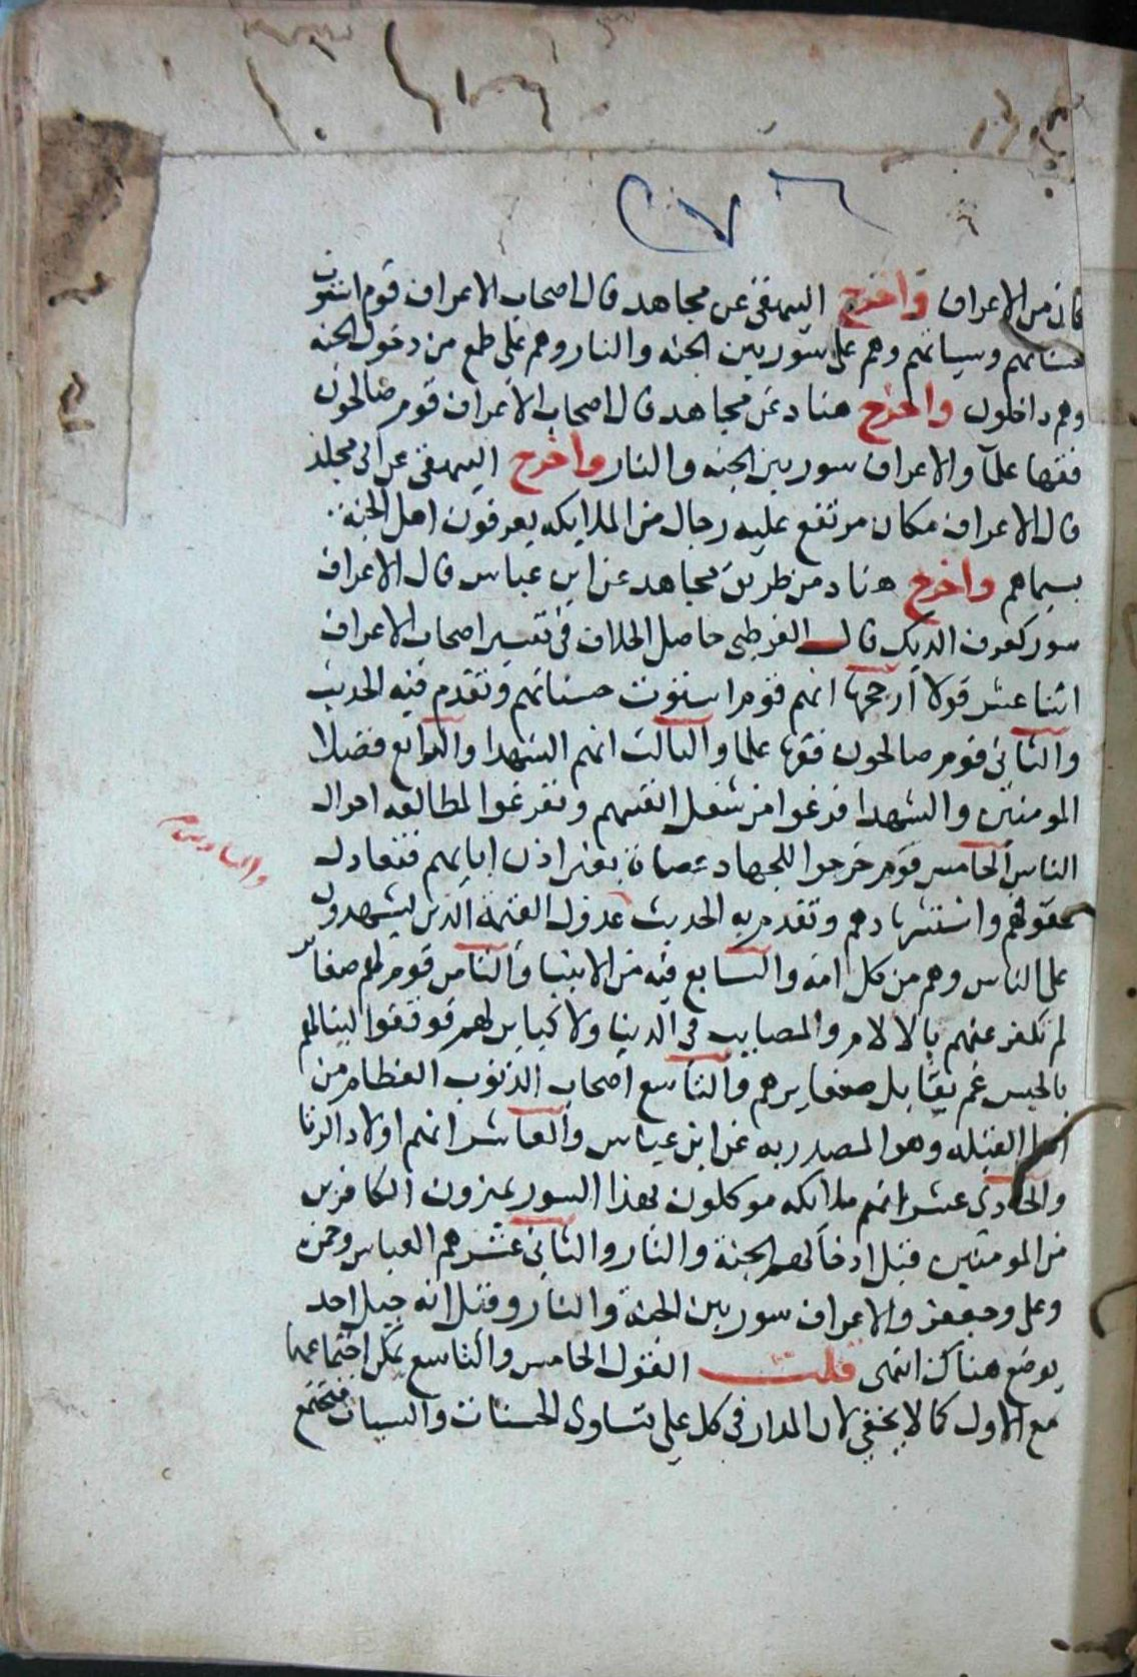 ٢٧٦
كان من الاعراف واخرج البيهقي عن مجاهد قال اصحاب الاعراف قوم استوت
حسناتهم وسياتهم وهم على سور بين الجنه والنار وهم على طمع من دخول الجنه
وهم داخلون واخرج هناد عن مجاهد قال اصحاب الاعراف قوم صالحون
فقها علما والاعراف سور بين الجنه والنار واخرج البيهقي عن ابي مجلز
قال الاعراف مكان مرتفع عليه رجال من الملايكه يعرفون اهل الجنة
بسيماهم واخرج هناد من طريق مجاهد عن ابن عباس قال الاعراف
سور كعرف الديك قال القرطبي حاصل الخلاف في تفسير اصحاب الاعراف
اثنا عشر قولا ارجحها انهم قوم استوت حسناتهم وتقدم فيه الحديث
والثاني قوم صالحون فقها علما والثالث انهم الشهدا والرابع فضلا
المومنين والشهدا فرغوا من شغل انفسهم وتفرغوا لمطالعه احوال
الناس الخامس قوم خرجوا للجهاد عصاة بغير اذن ابايهم فتعادل
والسادس
عقوقهم واستشهادهم وتقدم به الحديث عدول القيمة الذين يشهدون
على الناس وهم من كل امة والسابع فيه من الانبيا والثامن قوم لهم صغاير
لم تكفر عنهم بالالام والمصايب في الدنيا ولا كباير لهم فوقفوا لينالهم
بالحبس غم يقابل صغايرهم والتاسع اصحاب الذنوب العظام من
اهل القبله وهو المصدر به عن ابن عباس والعاشر انهم اولاد الزنا
والحادي عشر انهم ملائكه موكلون بهذا السور يميزون الكافرين
من المومنين قبل ادخالهم الجنة والنار والثاني عشر هم العباس وحمزة
وعلي وجعفر والاعراف سور بين الجنة والنار وقيل انه جبل احد
يوضع هناك انتهى قلت القول الخامس والتاسع يمكن اجتماعهما
مع الاول كما لا يخفي لان المدار في كل على تساوى الحسنات والسيات فتجتمع